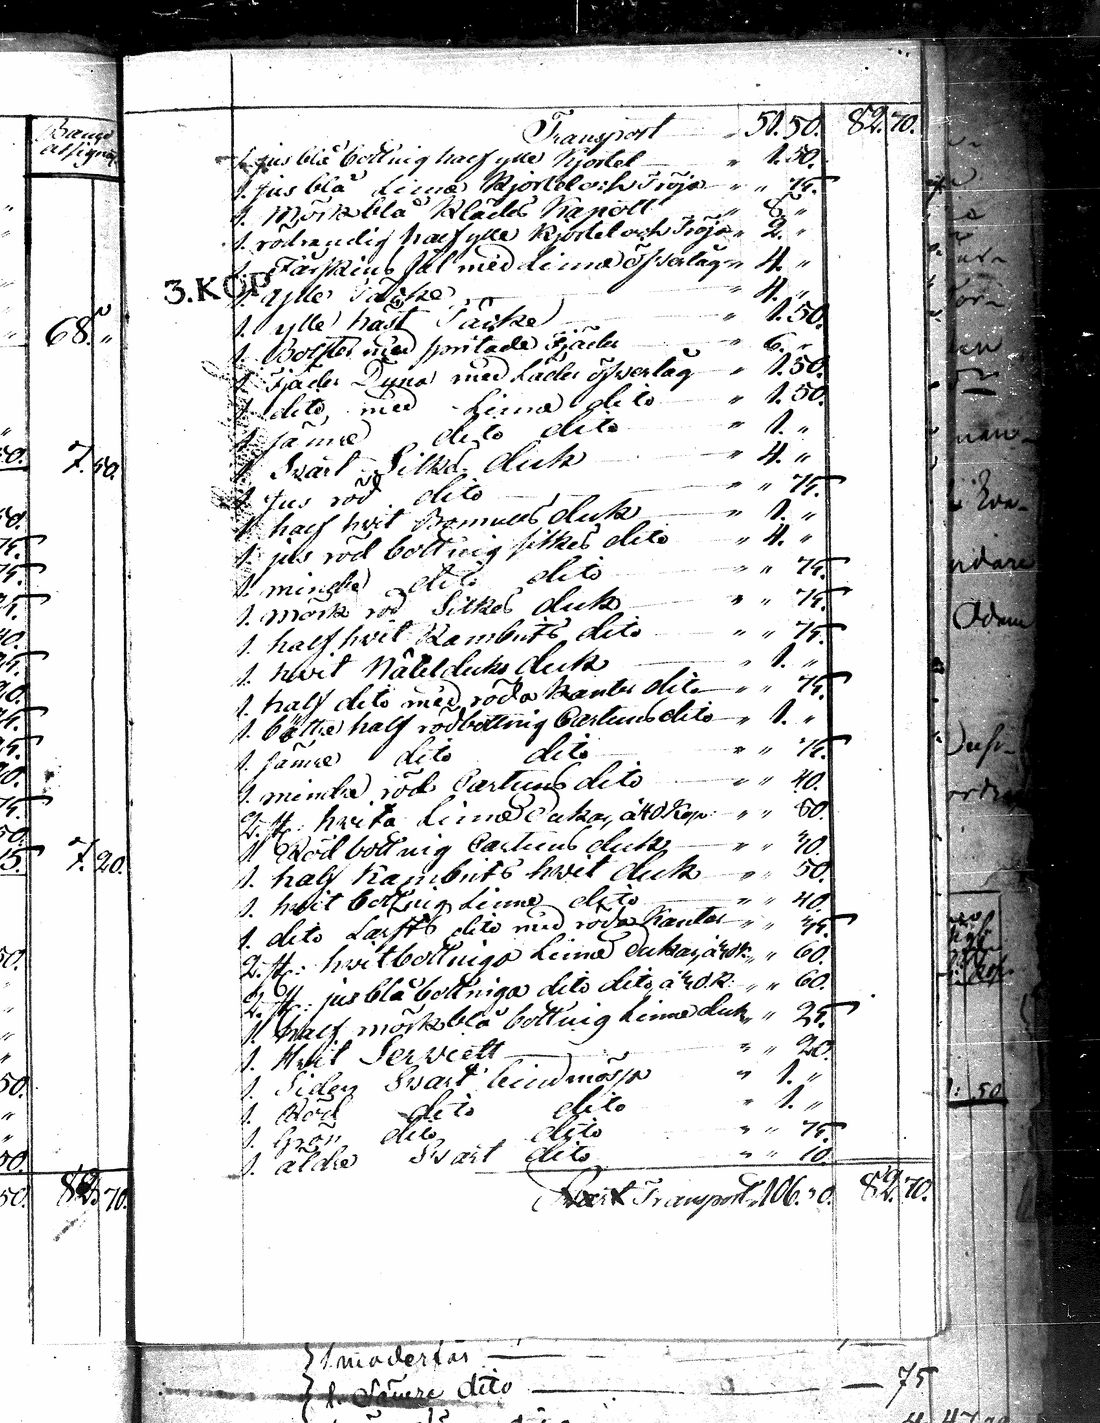 Transport 50. 50. 82. 70.
1. jus blå bottnig half ylle Kjortel " 1. 50.
1. jus blå Linne Kjortel och Tröja " " 75
1. Mörk blå Klädes Kapott " 8. "
1. rödrandig half ylle Kjortel och Tröja " 2. "
1. Fårskins fäl med Linne öfverlag " 4. "
3.KOP
1. ylle Täcke " 4. "
1. ylle häst Täcke " 1. 50.
1. Bolster med spritade Fjäder " 6. "
1. Fjäder Dyna med Läder öfverlag " 1. 50.
1. dito, med Linne dito " 1. 50.
1. sämre dito dito " 1. "
1. Svart Silkes duk " 4. "
1. jus röd dito " " 75.
1. half hvit Bomulls duk " 1. "
1. jus röd bottnig silkes dito " 4. "
1. mindre dito dito " " 75.
1. mörk röd Silkes duk " " 75.
1. half hvit Kambriks dito " " 75
1. hvit Nätelduks duk " 1. "
1. half dito med röda Kanter dito " " 75
1. bättre half rödbottnig Cartuns dito " 1. "
1. sämre dito dito " " 75
1. mindre röd Cartuns dito " " 40.
2. st. hvita Linne Dukar, à 40 Kop. " " 80.
1. Röd bottnig Cartuns duk " " 40.
1. half Kambriks hvit duk " " 50.
1. hvit bottnig Linne dito " " 40.
1. dito Lärfts dito med röda Kanter " " 75
2. st. hvitbottniga Linne Dukar, " " 60.
2. st. jus blå bottniga dito dito, " " 60.
1. half mörk blå bottnig Linne duk " " 25
1. Hvit Serviett " " 20.
1. Siden Svart bindmössa " 1. "
1. Röd dito dito " 1. "
1. Grön dito dito " " 75
1. äldre Svart dito " " 10.
Transport 106. 82. 70.
Banco
assignat.
68. "
7. 50.
7. 20.
82. 70.
1. moderlås
1. Sämre dito 75